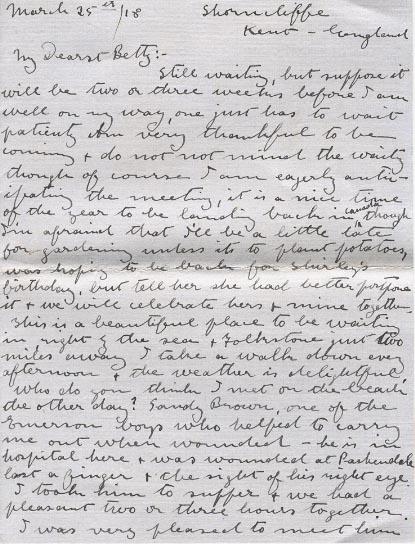 March 25th/18 Shorncliffe
Kent - England
My Dearst Betty:-
Still waiting, but suppose it
will be two or three weeks before I am
well on my way, one just has to wait
patiently Am very thankful to be
coming & do not not mind the waiting
though of course I am eagerly antic-
ipating the meeting, it is a nice time
of the year to be landing back in Canada though
I'm afraind that I'll be a little late
for gardening unless its to plant potatoes,
was hoping to be back for Shirley's
birthday, but tell her she had better postpone
it & we will celebrate hers & mine together
This is a beautiful place to be waiting
in sight of the sea & Folkstone just two
miles away I take a walk down every
afternoon & the weather is delightful,
Who do you think I met on the beach
the other day? Sandy Brown, one of the
Emerson boys who helped to carry
me out when wounded - he is in
hospital here & was wounded at Pachendale
last a finger & the sight of his right eye
I took him to supper & we had a
pleasant two or three hours together.
I was very pleased to meet him